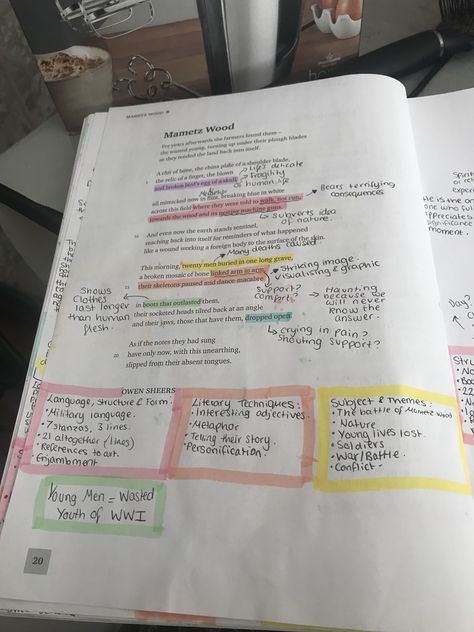 MAMETZ WOOD
Mametz Wood
For years afterwards the farmers found them –
the wasted young, turning up under their plough blades
as they tended the land back into itself.
A chit of bone, the china plate of a shoulder blade,
Life's delicate
5
the relic of a finger, the blown
fragility
and broken bird's egg of a skull,
Metaphor
of human life
all mimicked now in flint, breaking blue in white
across this field where they were told to walk, not run,
Bears terrifying consequences
towards the wood and its nesting machine guns.
subverts idea of nature.
10
And even now the earth stands sentinel,
reaching back into itself for reminders of what happened
like a wound working a foreign body to the surface of the skin.
Many deaths caused
This morning, twenty men buried in one long grave,
a broken mosaic of bone linked arm in arm,
Striking image.
visualising & graphic
15
their skeletons paused mid dance-macabre
Shows clothes last longer than human flesh.
Support?
comfort?
Haunting because we will never know the answer.
in boots that outlasted them,
their socketed heads tilted back at an angle
and their jaws, those that have them, dropped open.
crying in pain?
shouting support?
As if the notes they had sung
20
have only now, with this unearthing,
slipped from their absent tongues.
OWEN SHEERS
Language, structure & Form.
• Military language.
• 7 stanzas, 3 lines.
• 21 altogether (lines)
References to art.
• Enjambment
Literary Techniques:
• Interesting adjectives.
• Metaphor
• Telling their Story.
• Personification.
Subject & Themes:
• The battle of Mametz Wood
• Nature
• Young lives lost.
• Soldiers
• War/Battle.
• Conflict.
Young Men = Wasted
Youth of WWI
20